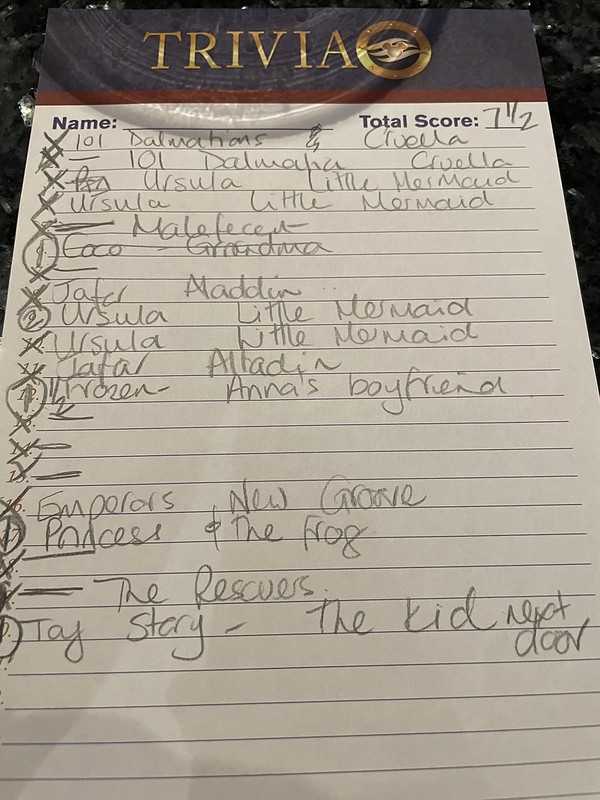 TRIVIA
Name: Total Score: 7 1/2
101 Dalmations & Cruella
101 Dalmatia Cruella
Ursula Little Mermaid
Ursula Little Mermaid
Malefecent
Coco - Grandma
Jafar Aladdin
9. Ursula Little Mermaid
10. Ursula Little Mermaid
11. Jafar Alladin
12. 1/2 Frozen - Anna's boyfriend
13.
14.
15.
16. Emperors New Groove
17. Princess & the frog
8.
The Rescuers.
Toy Story - The kid next
door